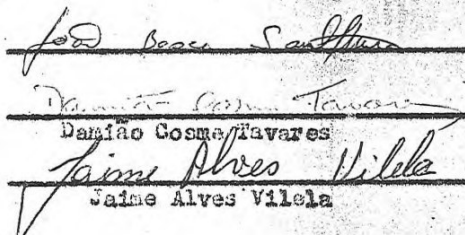 João Bosco
Damião Cosme Tavares
Damião Cosme Tavares
Jaime Alves Vilela
Jaime Alves Vilela